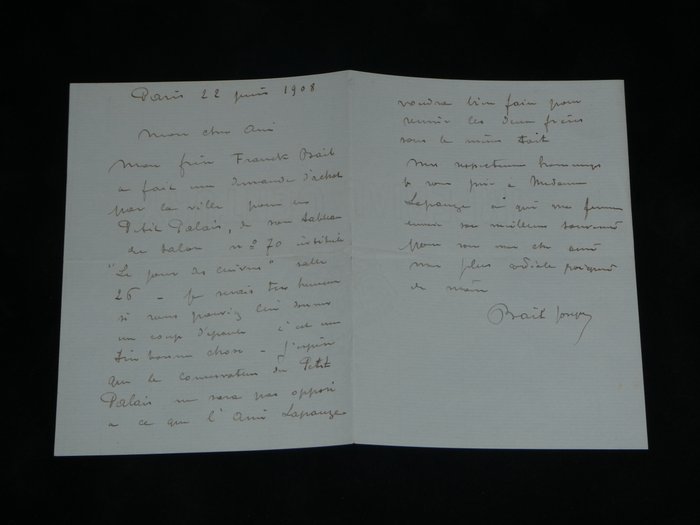 Paris 22 juin 1908
Mon cher Ami
Mon frère Franck Bail
a fait une demande d'achat
par la ville pour le
Petit Palais, de son tableau
du Salon nº 70 intitulé
"Le jour des cuivres" salle
26 - Je serais très heureux
si vous pouviez lui donner
un coup d'épaule c'est une
très bonne chose - J'espère
que le conservateur du Petit
Palais ne sera pas opposé
a ce que l'Ami Lapauze
voudra bien faire pour
réunir les deux frères
sous le même toit
Mes respectueux hommages
je vous prie a Madame
Lapauze à qui ma femme
envoie ses meilleurs souvenirs
pour vous mon cher ami
ma plus cordiale poignée
de main
Bail Joseph